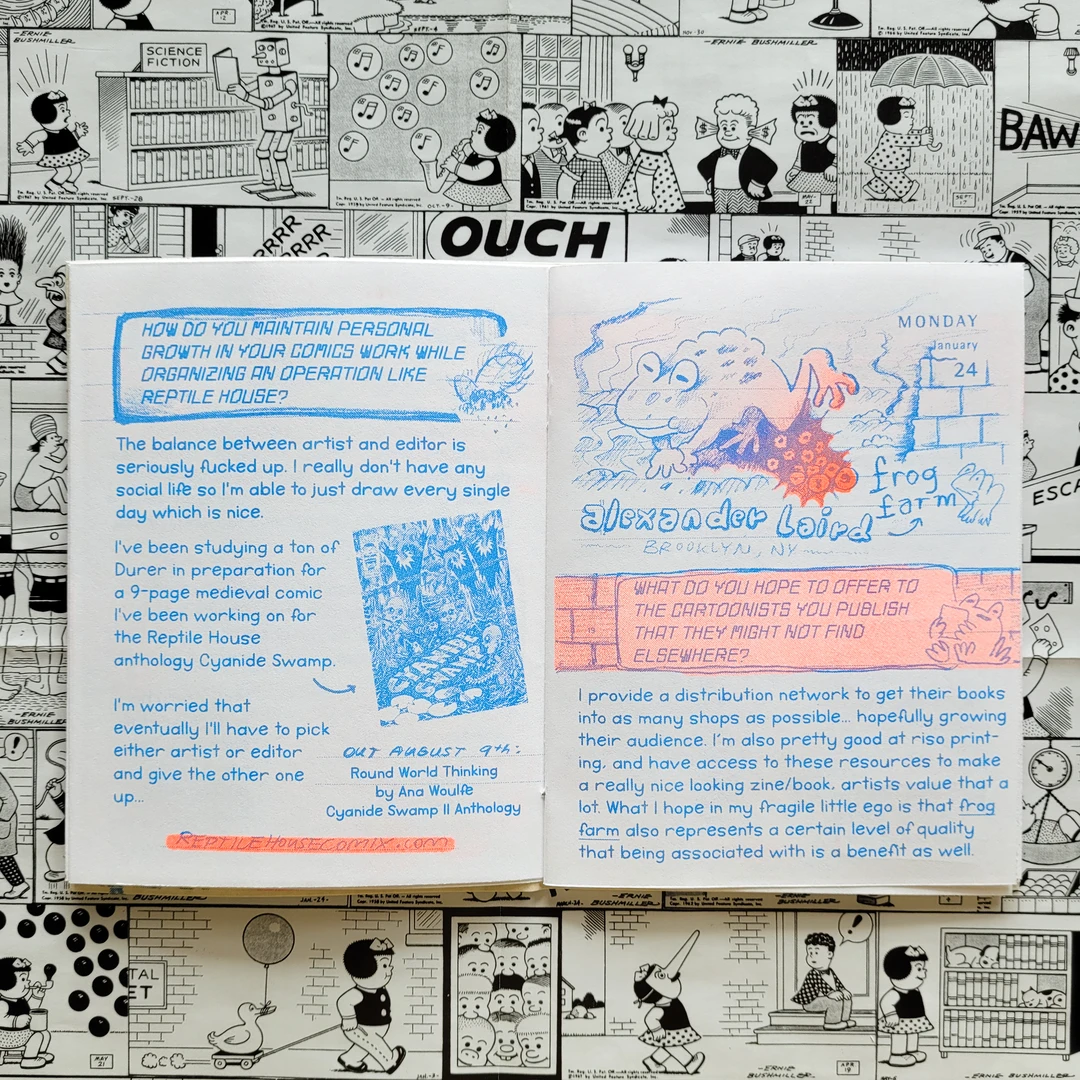 APR. 12
SEPT.-6
NOV-30
—ERNIE BUSHMILLER
—ERNIE BUSHMILLER—
SCIENCE
FICTION
SEPT.-28
OCT.-9-
MAY 22
SEPT. 17
BAW
RRRR
RRRR
OUCH
HOW DO YOU MAINTAIN PERSONAL
GROWTH IN YOUR COMICS WORK WHILE
ORGANIZING AN OPERATION LIKE
REPTILE HOUSE?
The balance between artist and editor is
seriously fucked up. I really don't have any
social life so I'm able to just draw every single
day which is nice.
I've been studying a ton of
Durer in preparation for
a 9-page medieval comic
I've been working on for
the Reptile House
anthology Cyanide Swamp.
I'm worried that
eventually I'll have to pick
either artist or editor
and give the other one
up...
CYANIDE
SWAMP
OUT AUGUST 9th:
Round World Thinking
by Ana Woulfe
Cyanide Swamp II Anthology
REPTILEHOUSECOMIX.COM
MONDAY
January
24
frog
farm
alexander laird
BROOKLYN, NY
WHAT DO YOU HOPE TO OFFER TO
THE CARTOONISTS YOU PUBLISH
THAT THEY MIGHT NOT FIND
ELSEWHERE?
I provide a distribution network to get their books
into as many shops as possible... hopefully growing
their audience. I'm also pretty good at riso print-
ing, and have access to these resources to make
a really nice looking zine/book. artists value that a
lot. What I hope in my fragile little ego is that frog
farm also represents a certain level of quality
that being associated with is a benefit as well.
ESCA
—ERNIE
BUSHMILLER
!
BUSHMILLER
JAN.-24-
—ERNIE
BUSHMILLER
TAL
ET
MAY 21
JAN.-3-
!
APR. 19
—ERNIE
BUSHMILLER
—ERNIE BUSHMILLER—